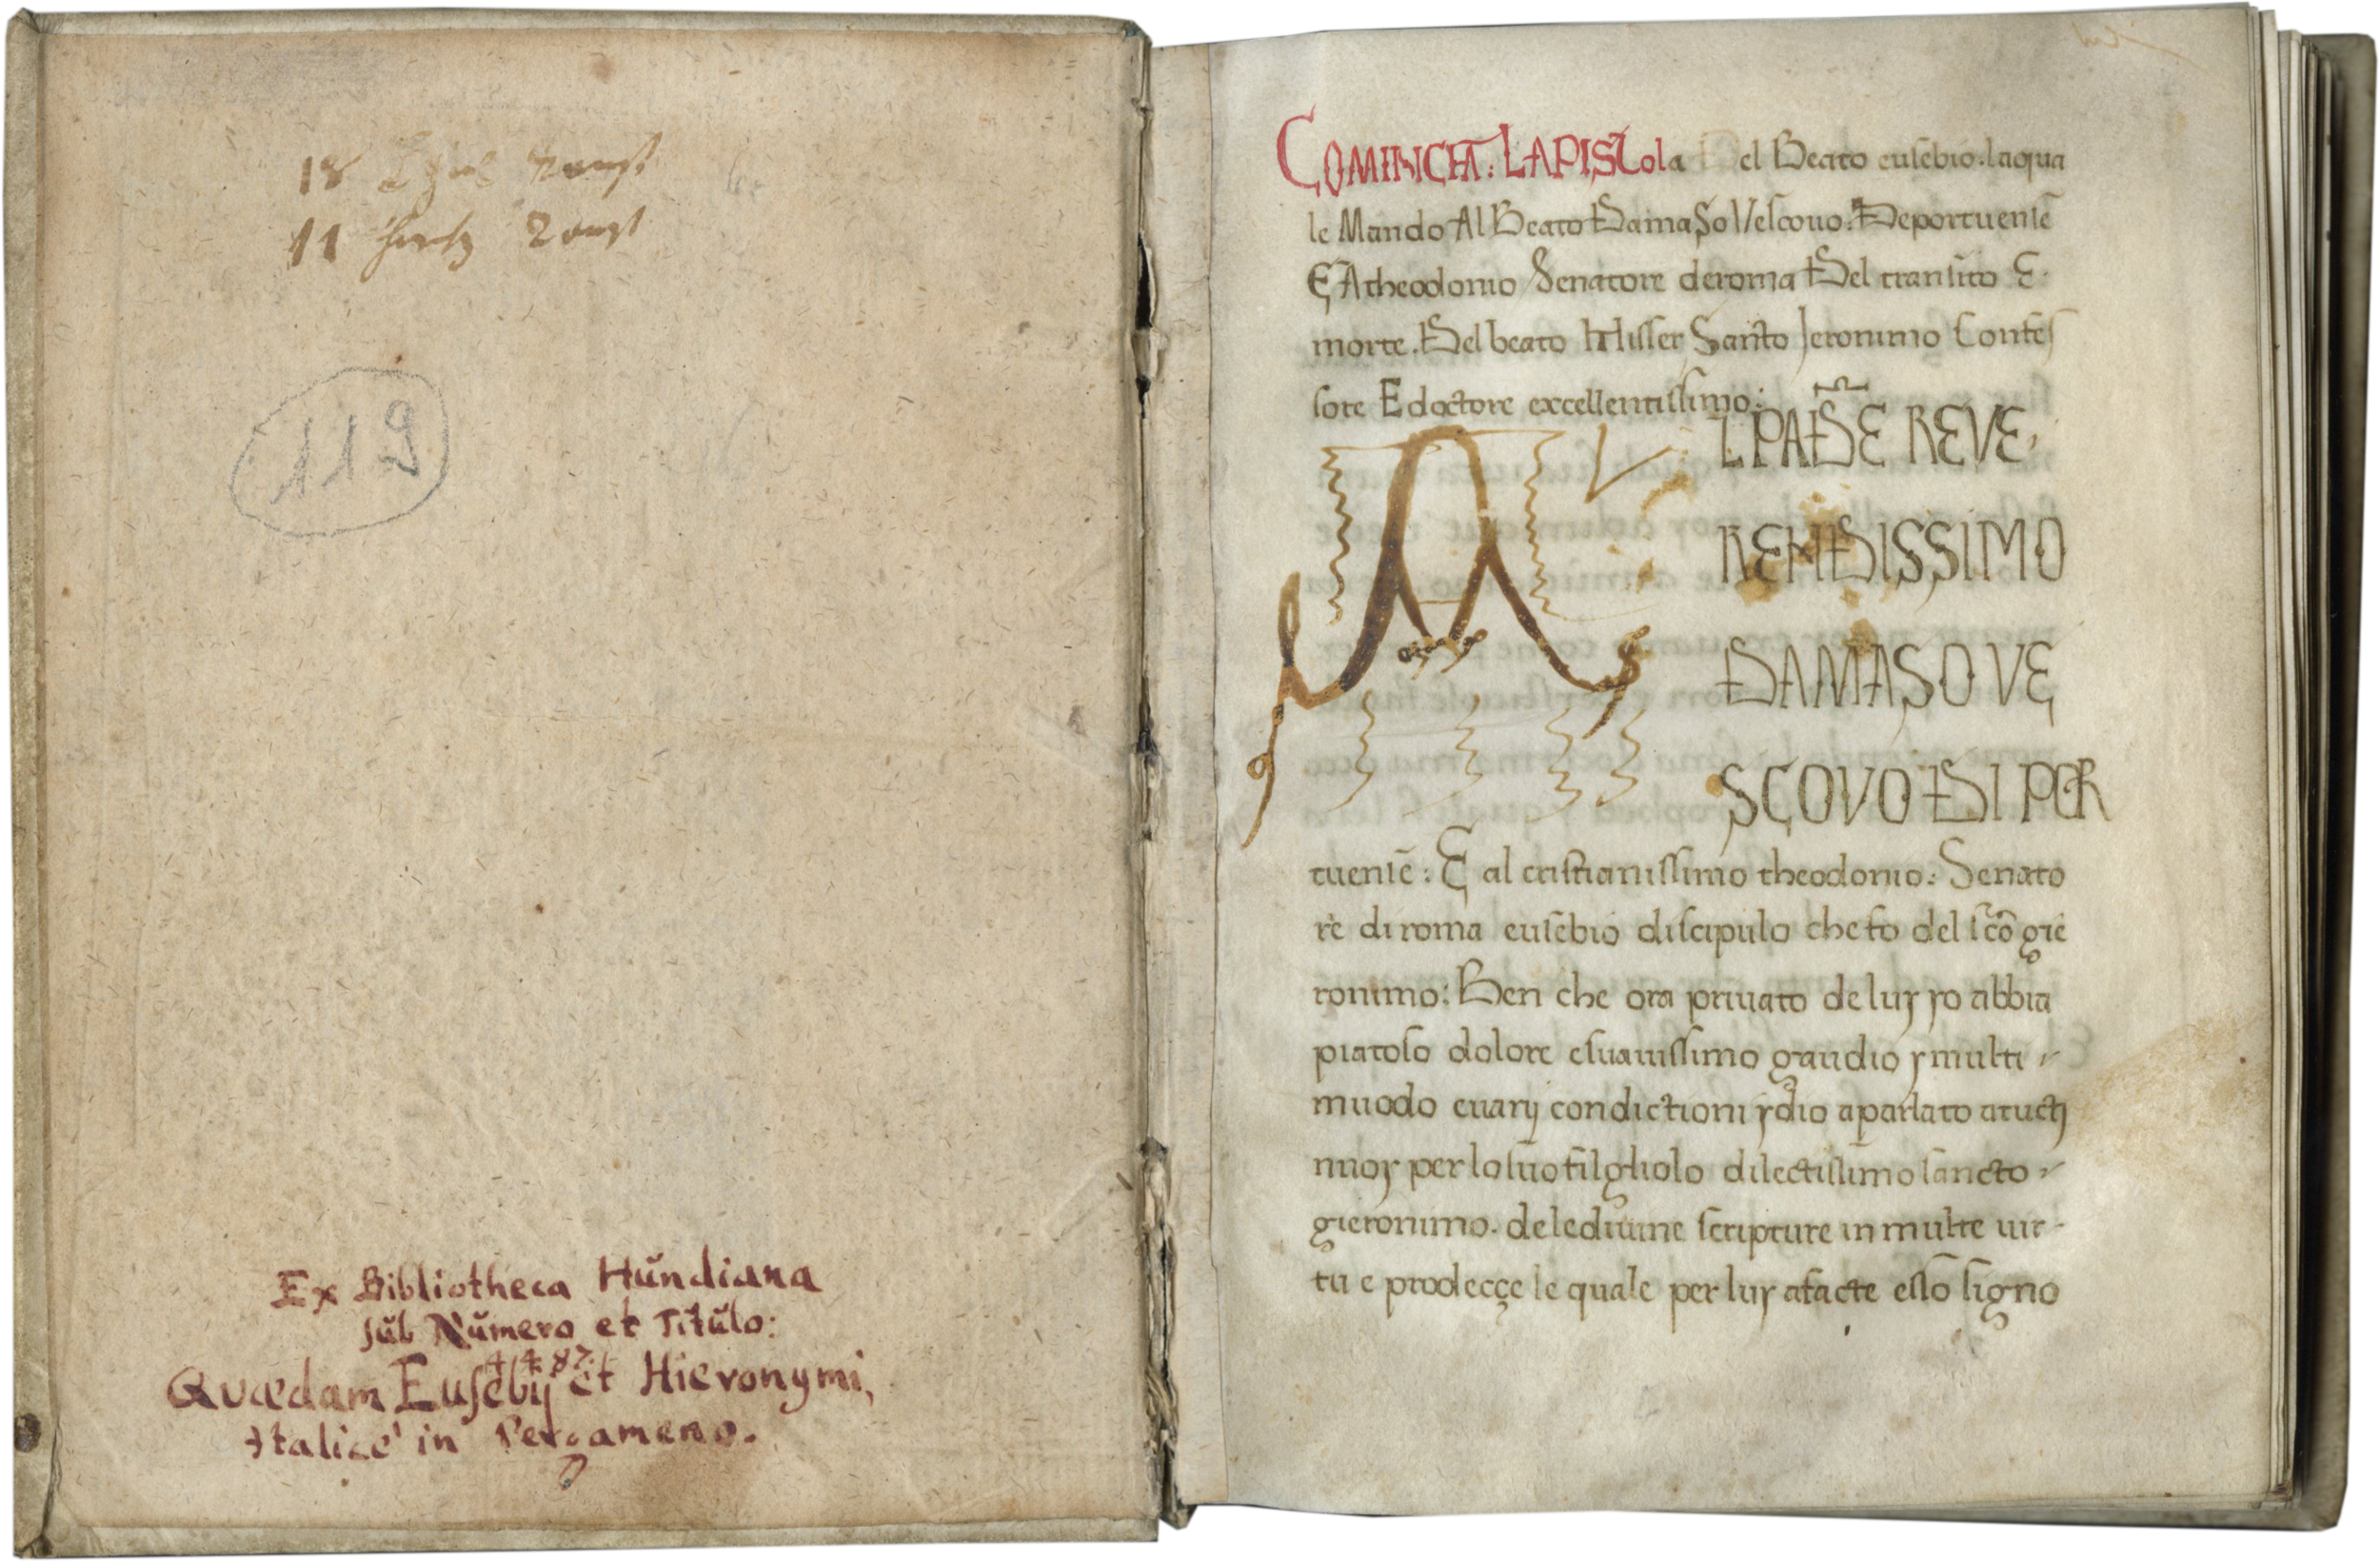 18
11
119
Ex Bibliotheca Hundiana
sub Numero et Titulo:
4487.
Quædam Eusebij et Hieronymi,
Italicè in Pergameno.
COMINCIA: LAPIStola Del Beato eusebio. laqua
le Mando Al Beato DamaSo Vescouo. Deportuense
E Atheodonio Senatore deroma Del transito E.
morte. Del beato Misser Santo Jeronimo Confes
sore E doctore excellentissimo:
A L PADRE REVE,
RENDISSIMO
DAMASO VE
SCOVO DI POR
tuense: E al cristianissimo theodonio: Senato
re di roma eusebio discipulo che fo del sco gie
ronimo: Ben che ora priuato de luy yo abbia
piatoso dolore esuauissimo gaudio y multi
muodo euarij condictioni ydio a parlato atucti
nuoy per lo suo filgliolo dilectissimo sancto
gieronimo. de lediuine scripture in multe uir-
tu e prodecçe le quale per luy afacte esso signo